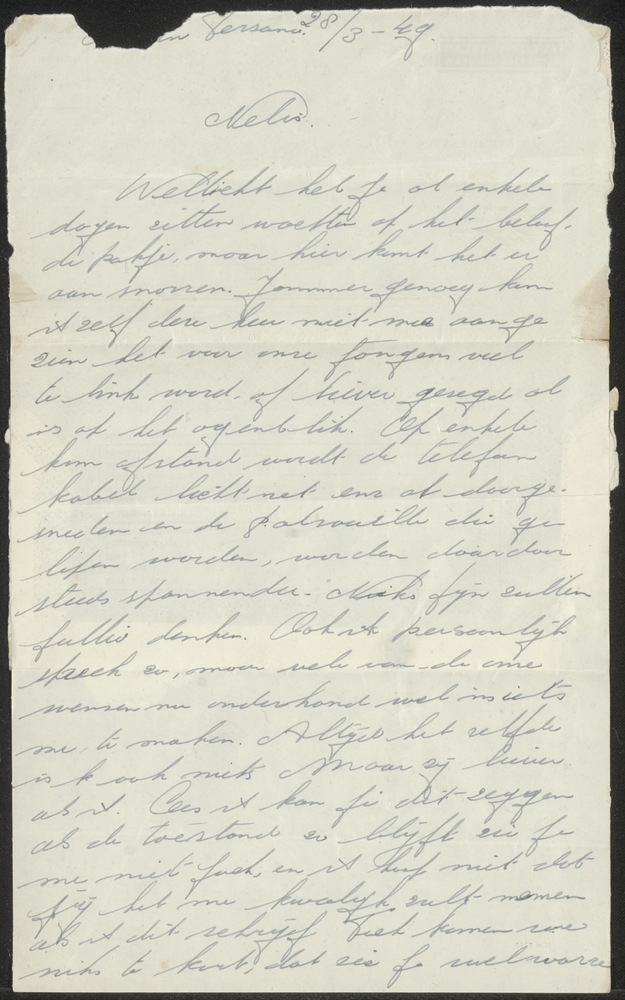 Versand. 28/3 - 49.
Nelis.
Wellicht heb je al enkele
dagen zitten wachten op het beloof-
de pakje, maar hier komt het er
aan snorren. Jammer genoeg kan
ik zelf deze keer niet mee aange
zien het voor onze jongens veel
te link word. of liever gezegd al
is op het ogenblik. Op enkele
km afstand wordt de telefoon
kabel licht net enz al doorge-
sneden en de patrouille die ge
lopen worden, worden daardoor
steeds spannender. Niks fijn zullen
jullie denken. Ook ik persoonlijk
spreek zo, maar vele van de onze
wensen nu onderhand wel ins iets
me te maken. Altijd het zelfde
is k ook niks Maar zij liever
als ik. Cees ik kan je dit zeggen
als de toestand zo blijft zie je
me niet gauw, en ik hoop niet dat
jij het me kwalijk zult nemen
als ik dit schrijf komen we
niks te kort, dat zie je wel waar